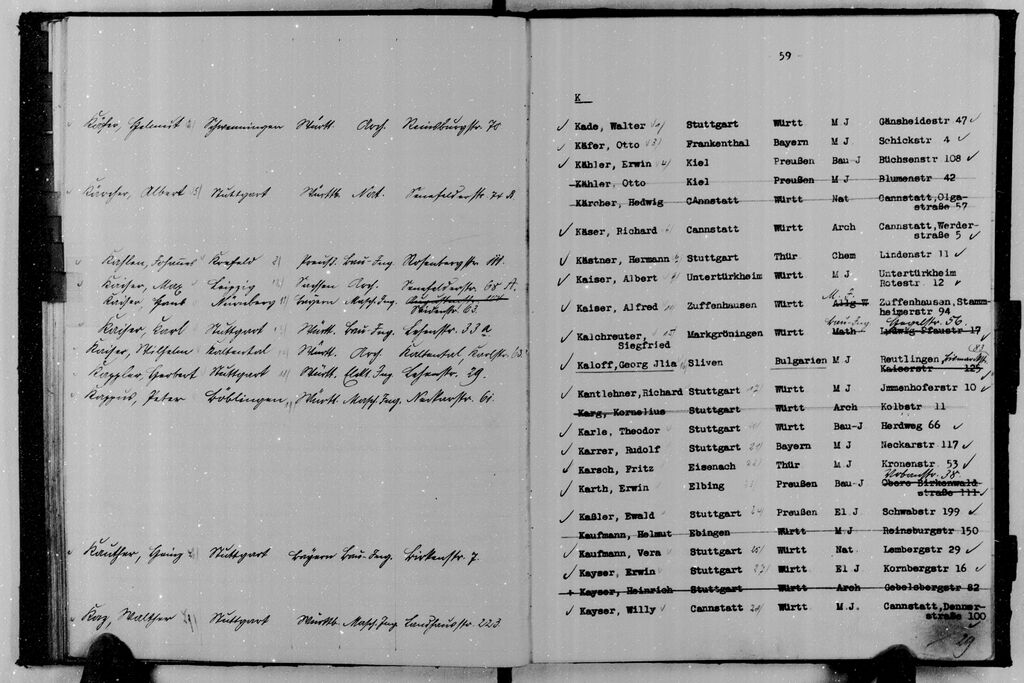 Käfer, Helmut Schwenningen Württ. Arch. Reinsburgstr. 70
Kärcher, Albert Stuttgart Württb. Nat. Senefelderstr. 74 B
Kahlen, Johannes Krefeld Preuß. Bau-Ing. Rosenbergstr.
Kaiser, Max Leipzig Sachsen Arch. Senefelderstr. 68 A.
Kaiser, Nürnberg Bayern Masch. Ing.
Seidenstr. 63.
Kaiser, Karl Stuttgart Württ. Bau-Ing. Lehenstr. 33 a
Kaiser, Wilhelm Kaltental Württ. Arch. Kaltental, Karlstr. 63.
Kappler, Herbert Stuttgart Württ. Elekt. Ing. Lehenstr. 29.
Kappus, Peter Böblingen, Württ. Masch. Ing. Neckarstr. 61.
Kauther, Georg Stuttgart Bayern Bau-Ing. Birkenstr. 7.
Kay, Walther Stuttgart Württb. Masch. Ing. Landhausstr. 223
59
K
Kade, Walter Stuttgart Württ M J Gänsheidestr 47
Käfer, Otto Frankenthal Bayern M J Schickstr 4
Kähler, Erwin Kiel Preußen Bau-J Büchsenstr 108
Kähler, Otto Kiel Preußen M J Blumenstr 42
Kärcher, Hedwig Cannstatt Württ Nat Cannstatt,Olga-
straße 57
Käser, Richard Cannstatt Württ Arch Cannstatt,Werder-
straße 5
Kästner, Hermann Stuttgart Thür Chem Lindenstr 11
Kaiser, Albert Untertürkheim Württ M J Untertürkheim
Rotestr 12
Kaiser, Alfred Zuffenhausen Württ Allg W Zuffenhausen,Stamm-
heimerstr 94
Bau-Ing
Kalchreuter, Markgröningen Württ Math Ludwig Pfaustr 17
Siegfried
Kaloff,Georg Jlia Sliven Bulgarien M J Reutlingen,
Kaiserstr 125
Kantlehner,Richard Stuttgart Württ M J Jmmenhoferstr 10
Karg, Kornelius Stuttgart Württ Arch Kolbstr 11
Karle, Theodor Stuttgart Württ Bau-J Herdweg 66
Karrer, Rudolf Stuttgart Bayern M J Neckarstr 117
Karsch, Fritz Eisenach Thür M J Kronenstr 53
Urbanstr. 38
Karth, Erwin Elbing Preußen Bau-J Obere Birkenwald
straße 111
Kaßler, Ewald Stuttgart Preußen El J Schwabstr 199
Kaufmann, Helmut Ebingen Württ M J Reinsburgstr 150
Kaufmann, Vera Stuttgart Württ Nat Lembergstr 29
Kayser, Erwin Stuttgart Württ El J Kornbergstr 16
+ Kayser, Heinrich Stuttgart Württ Arch Gebelsbergstr 82
Kayser, Willy Cannstatt Württ M.J. Cannstatt,Denner-
straße 100
29